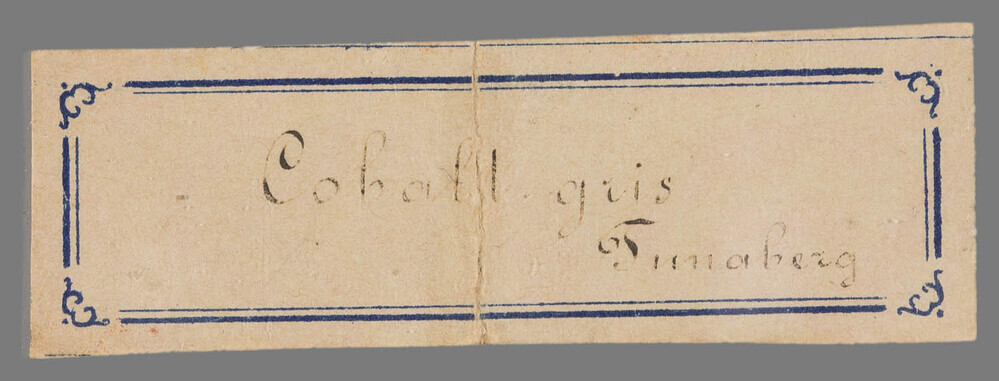 Cobalt gris
Tunaberg